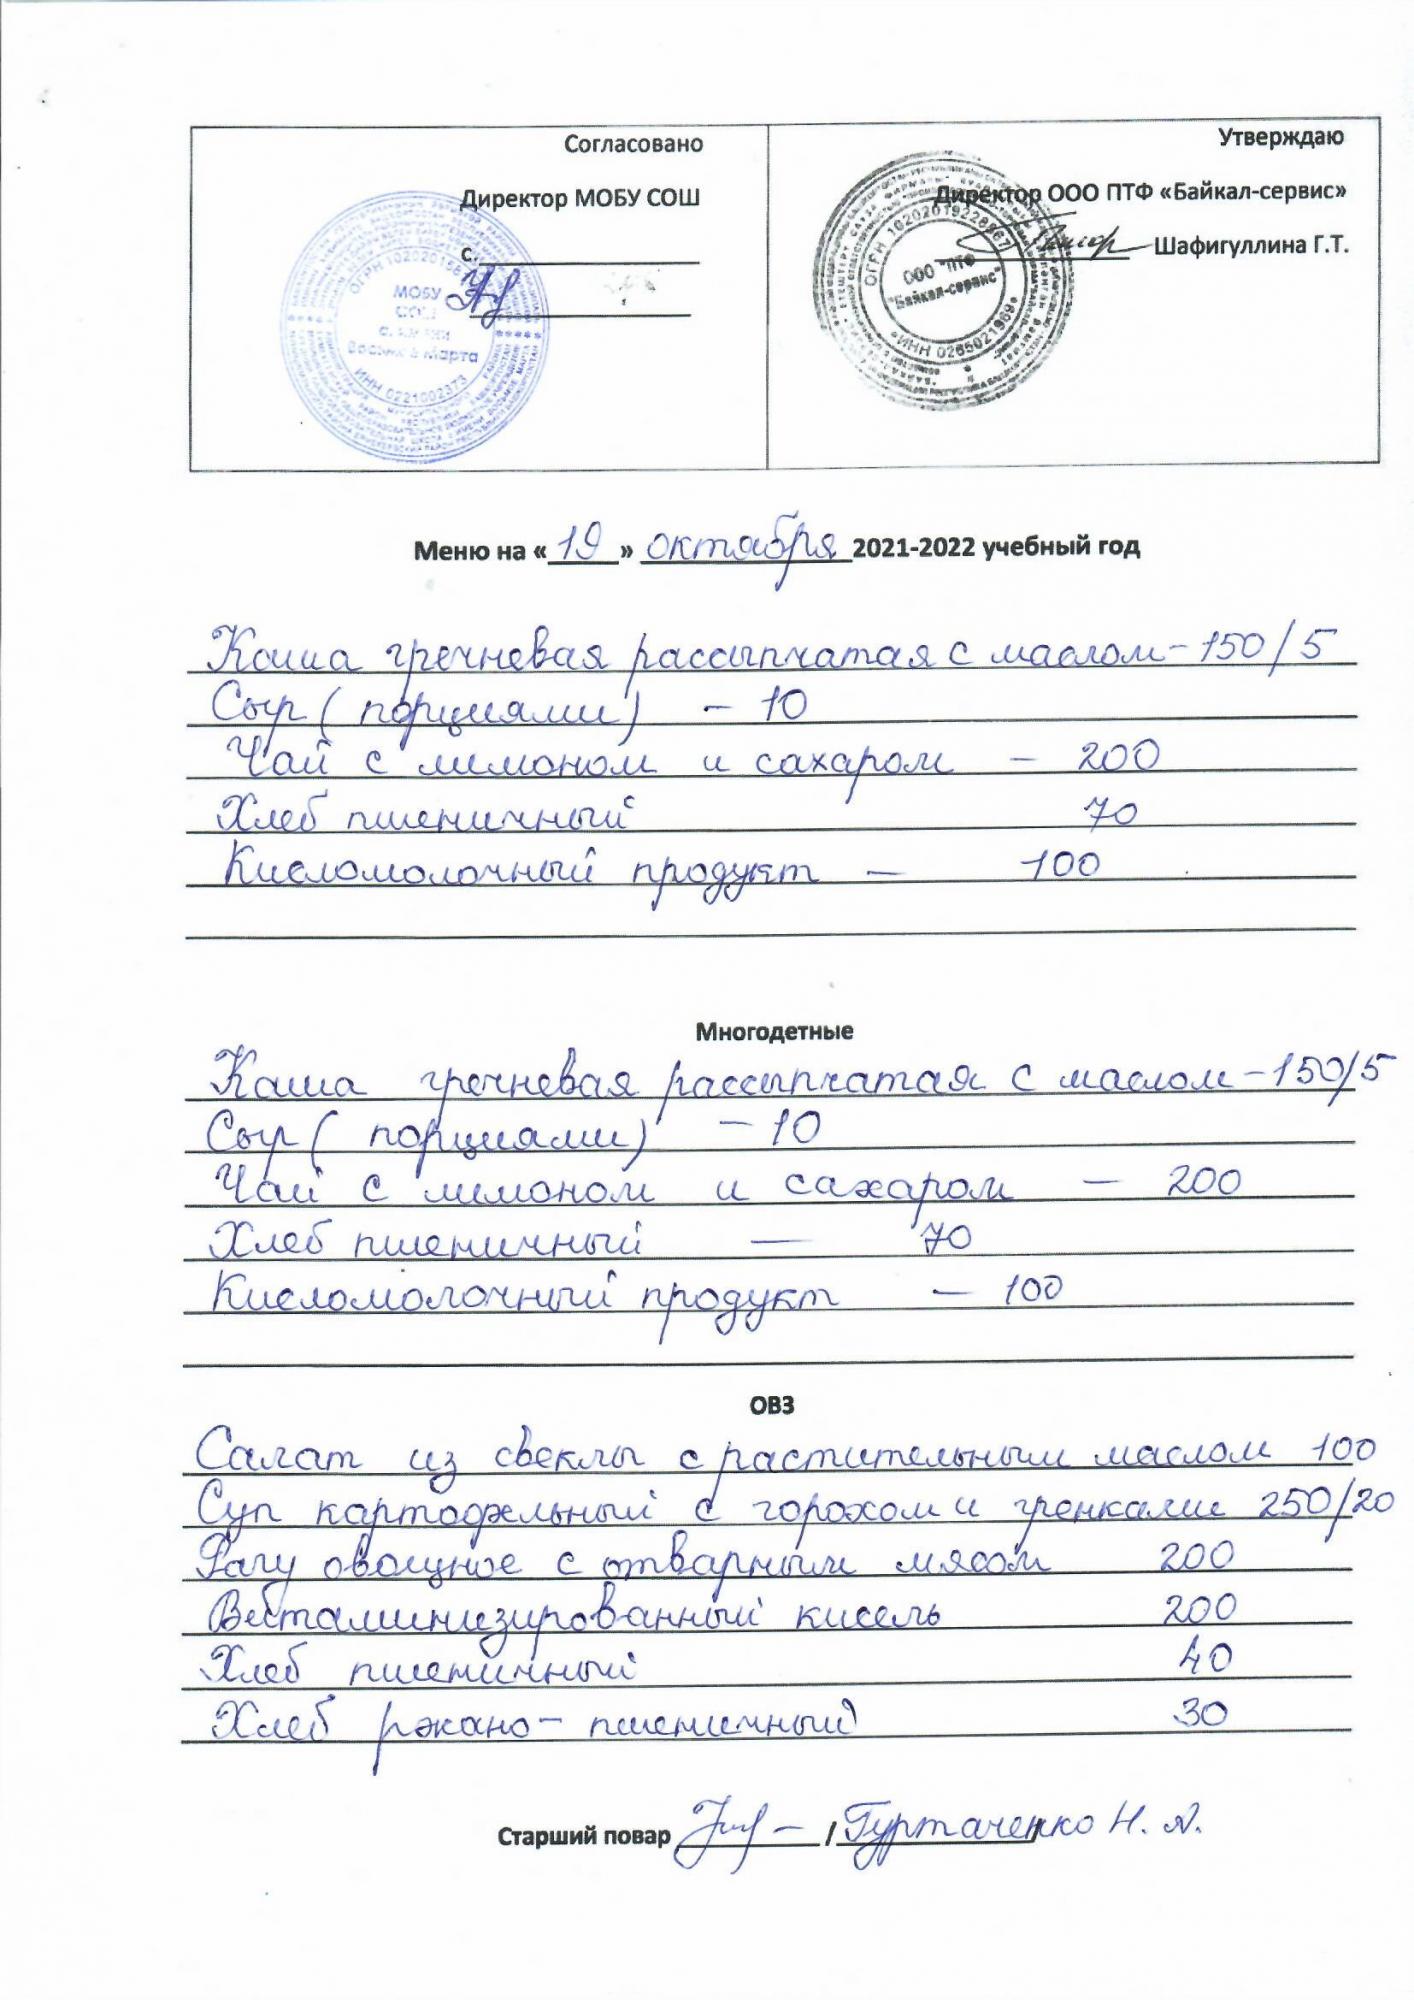 Согласовано
Директор МОБУ СОШ
с.
ОГРН
МОБУ
СОШ
Восьмое Марта
ИНН 0221002373
Утверждаю
Директор ООО ПТФ «Байкал-сервис»
Шафигуллина Г.Т.
ОГРН
ООО "ПТФ
"Байкал-сервис"
ИНН 0265021969
Меню на «19» октября 2021-2022 учебный год
Каша гречневая рассыпчатая с маслом - 150/5
Сыр (порциями) - 10
Чай с лимоном и сахаром - 200
Хлеб пшеничный 70
Кисломолочный продукт - 100
Многодетные
Каша гречневая рассыпчатая с маслом - 150/5
Сыр (порциями) - 10
Чай с лимоном и сахаром - 200
Хлеб пшеничный - 70
Кисломолочный продукт - 100
ОВЗ
Салат из свеклы с растительным маслом 100
Суп картофельный с горохом и гренками 250/20
Рагу овощное с отварным мясом 200
Витаминизированный кисель 200
Хлеб пшеничный 40
Хлеб ржано-пшеничный 30
Старший повар / Гуртаченко Н. А.